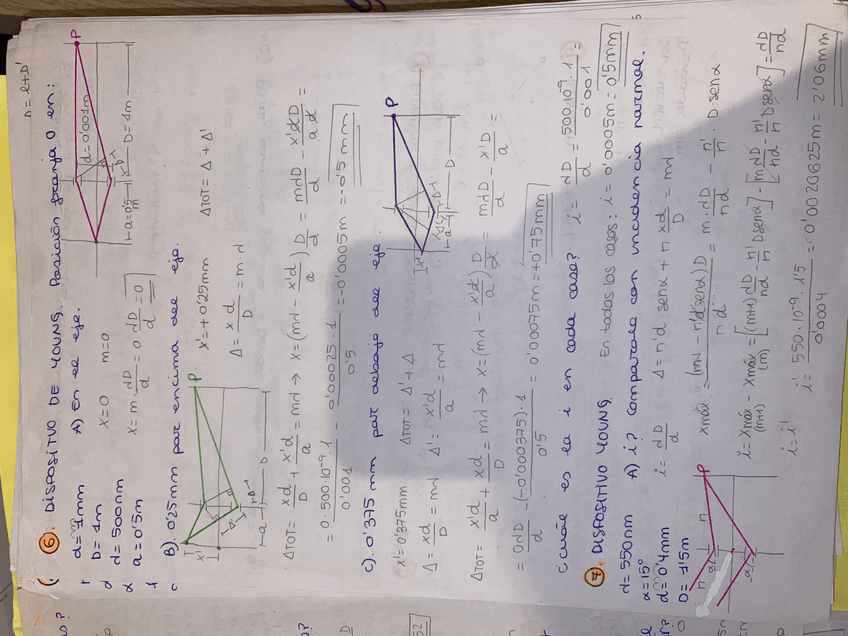 6. DISPOSITIVO DE YOUNG. Posición franja 0 en:
D = l + D'
d = 1mm
D = 1m
λ = 500nm
a = 0'5m
A) En el eje.
x = 0 m = 0
x = m · λD/d = 0 λD/d = 0
d = 0'001m
a = 0'5m
D = 1m
P
B). 0'25mm por encima del eje.
x' = +0'25mm
Δ = xd/D = mλ
ΔTOT = Δ + Δ'
P
a
D
ΔTOT = xd/D + x'd/a = mλ → x = (mλ - x'd/a) D/d = mλD/d - x'dD/ad =
= 0·500·10⁻⁹·1/0'001 - 0'00025·1/0'5 = -0'0005m = -0'5mm
C). 0'375mm por debajo del eje.
x' = 0'375mm ΔTOT = Δ' + Δ
Δ = xd/D = mλ Δ' = x'd/a = mλ
P
a
D
ΔTOT = x'd/a + xd/D = mλ → x = (mλ - x'd/a) D/d = mλD/d - x'D/a =
= 0λD/d - (-0'000375)·1/0'5 = 0'00075m = +0'75mm
¿Cuál es la i en cada caso? i = λD/d = 500·10⁻⁹·1/0'001 =
En todos los casos: i = 0'0005m = 0'5mm
7. DISPOSITIVO YOUNG.
λ = 550nm
α = 15°
d = 0'4mm
D = 1'5m
A) i? Comparala con incidencia normal.
i = λD/d Δ = n'd senα + n xd/D = mλ
xmáx = (mλ - n'd senα)D/nd = m·λD/nd - n'/n · D senα
i = xmáx (m+1) - xmáx (m) = [(m+1) λD/nd - n'/n D senα] - [mλD/nd - n'/n D senα] = λD/nd
i = i' i = 550·10⁻⁹·1'5/0'0004 = 0'0020625m = 2'06mm
P
n'
n
α